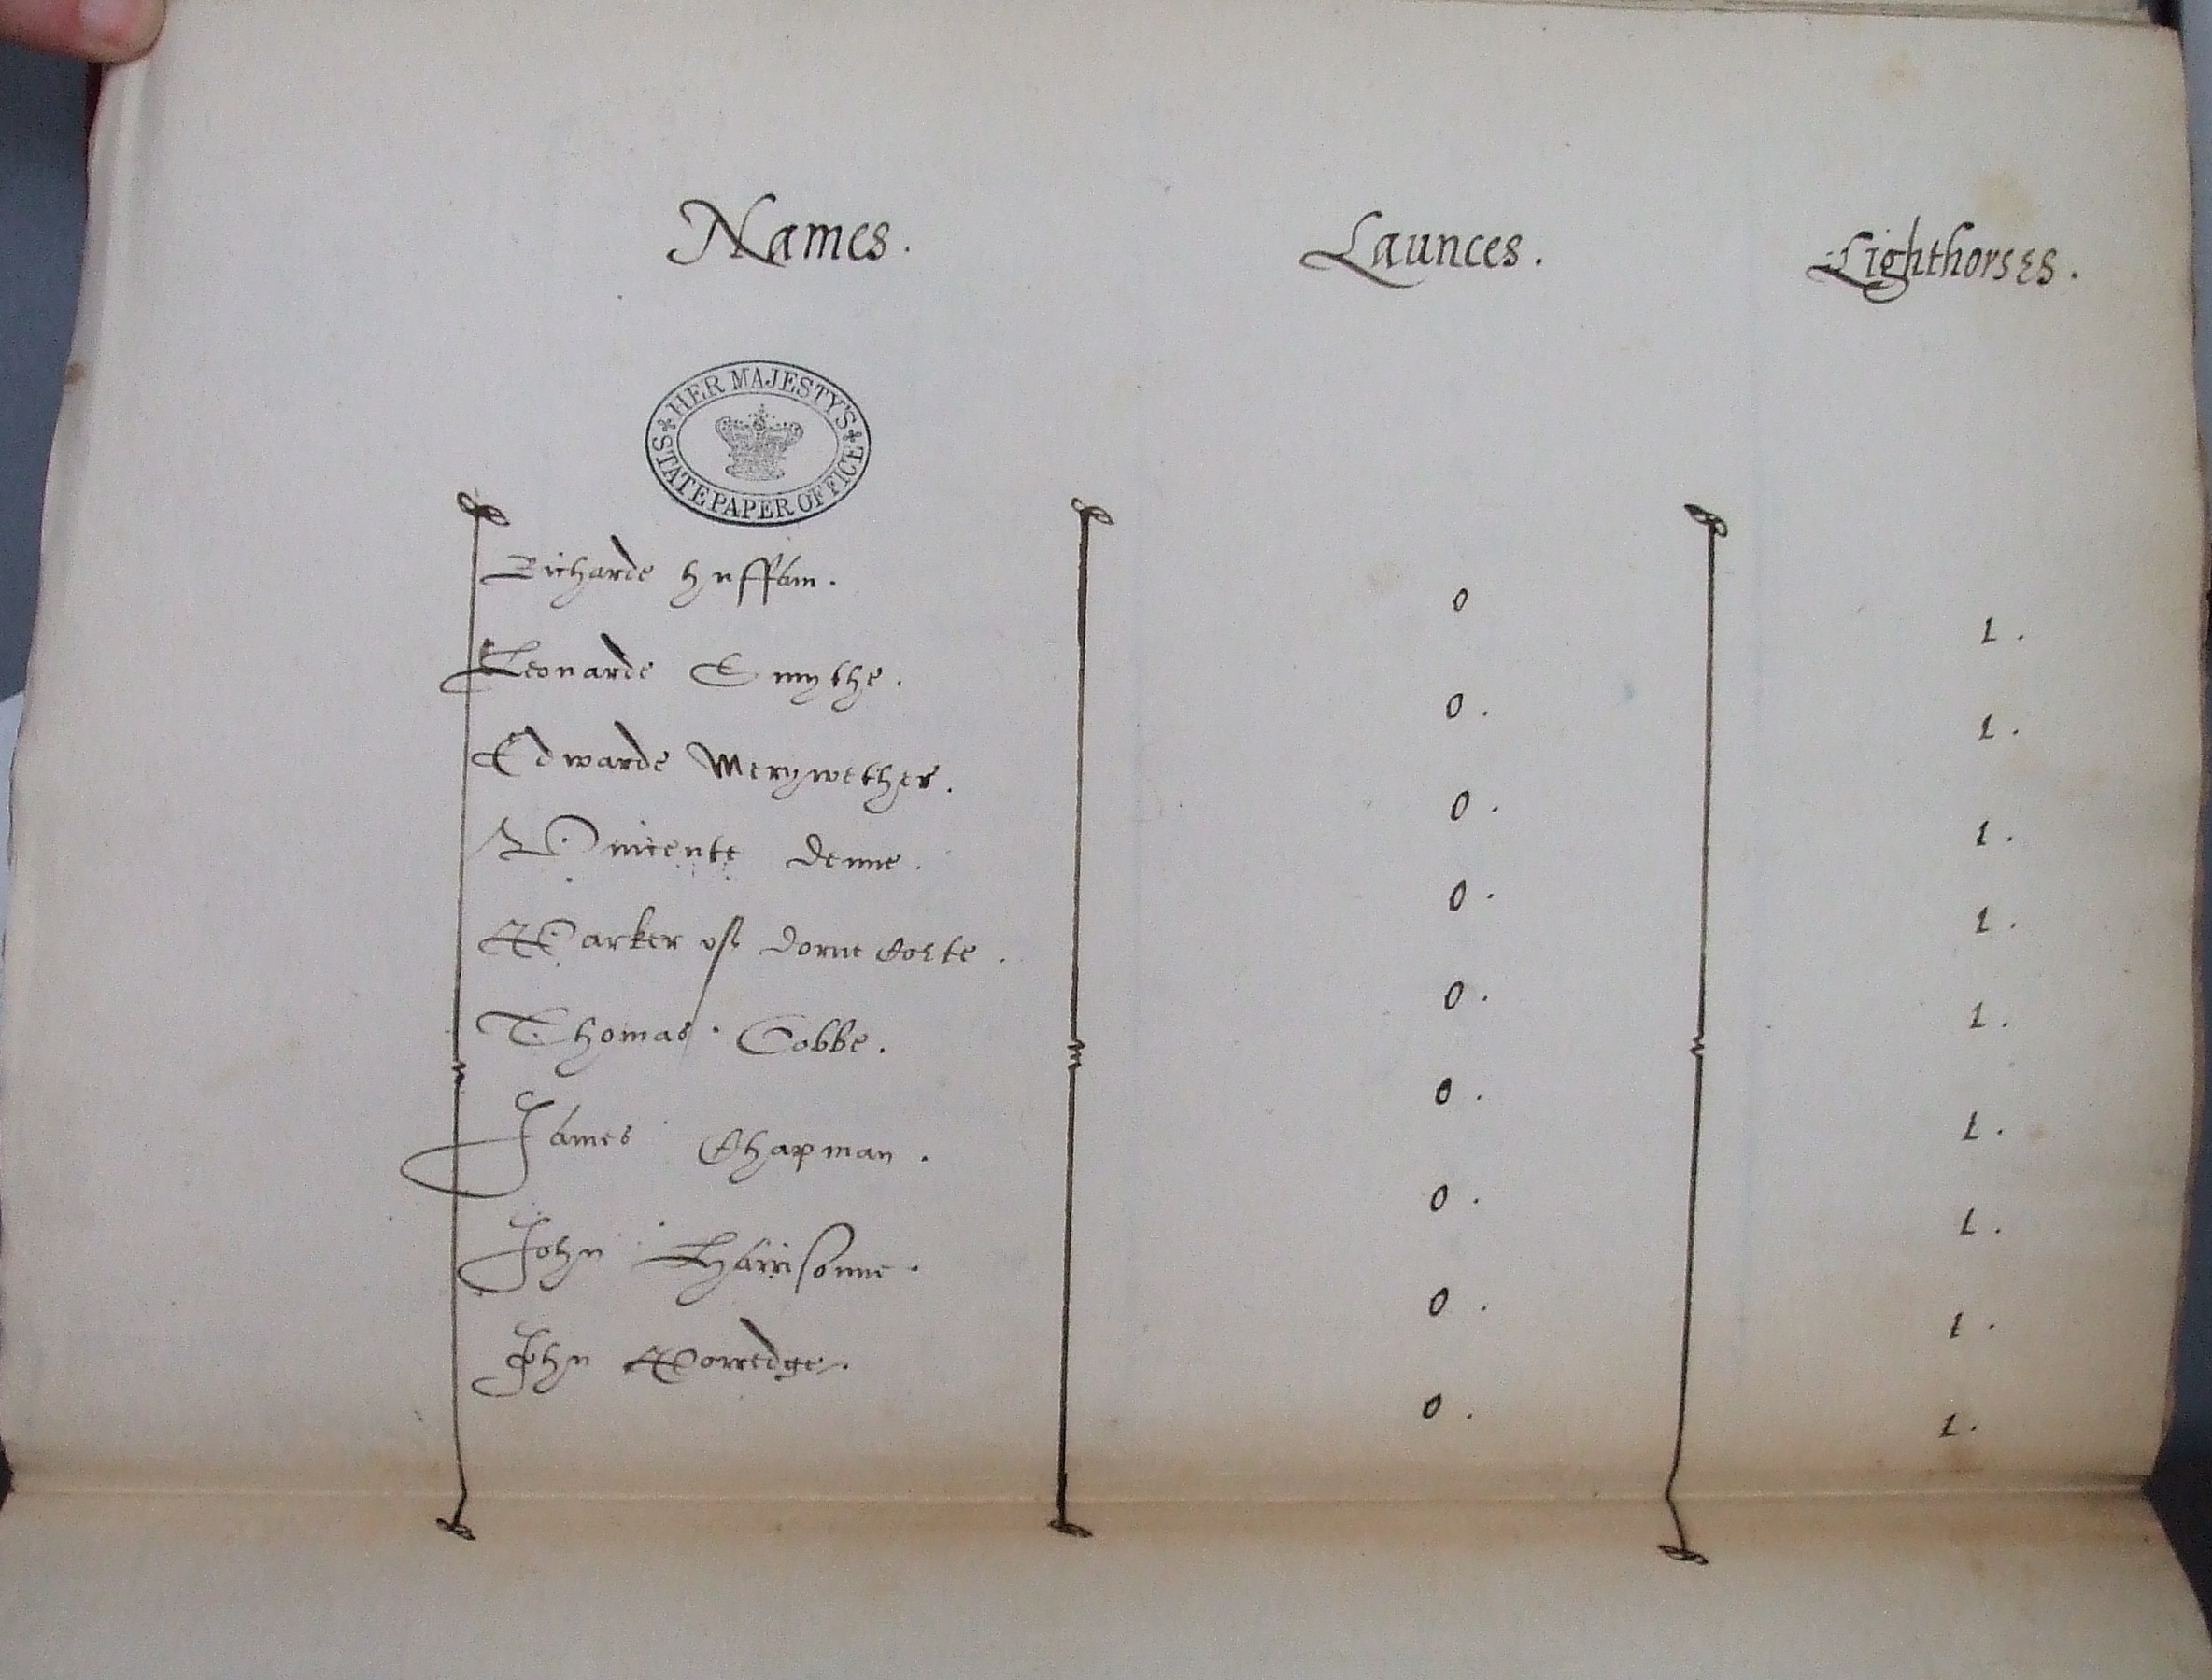 Names. Launces. Lighthorses.
HER MAJESTY'S STATE PAPER OFFICE
Richarde huffam. 0 1.
Leonarde Smythe. 0. 1.
Edwarde Merywether. 0. 1.
Vincente denne. 0. 1.
Parker of 0. 1.
Thomas Cobbe. 0. 1.
James Chapman. 0. 1.
John Harrisonne. 0. 1.
John 0. 1.